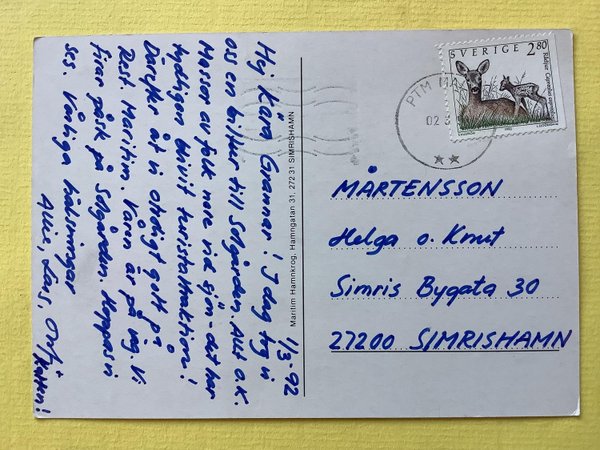 1/3-92
Hej Kära Grannar! I dag tog vi
oss en biltur till Solgården. Allt o.k.
Massor av folk nere vid sjön - det har
tydligen blivit turistattraktion!
Därefter åt vi otroligt gott på
Rest. Maritim. Våren är på väg. Vi
firar påsk på Solgården. Hoppas vi
ses. Vänliga hälsningar
Lars,
katten!
Maritim Hamnkrog, Hamngatan 31, 272 31 SIMRISHAMN
SVERIGE 2.80
Rådjur Capreolus capreolus
PTM
02
MÅRTENSSON
Helga o. Knut
Simris Bygata 30
27200 SIMRISHAMN